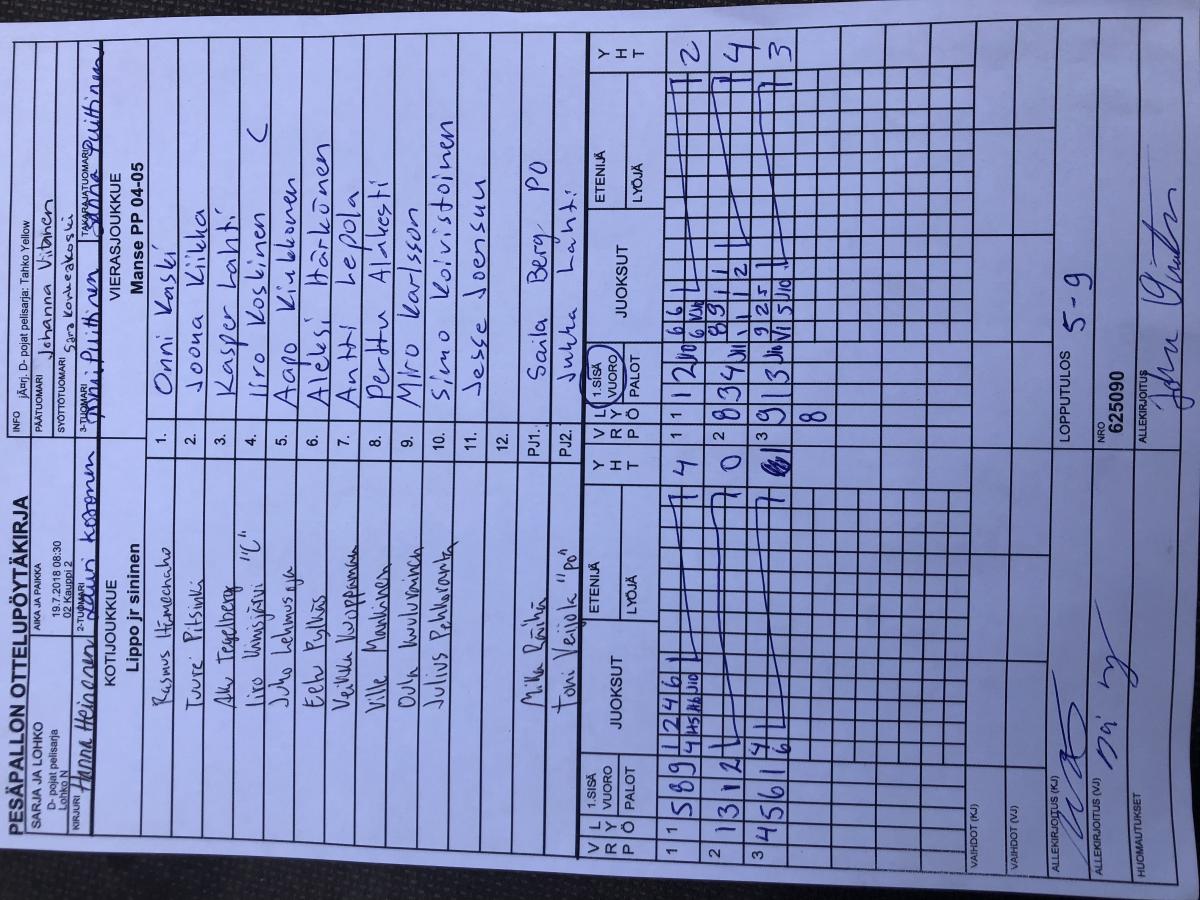 PESÄPALLON OTTELUPÖYTÄKIRJA
SARJA JA LOHKO
D- pojat pelisarja
Lohko N
AIKA JA PAIKKA
19.7.2018 08:30
02 Kauppi 2
INFO jÄrrj. D- pojat pelisarja: Tahko Yellow
PÄÄTUOMARI Johanna Viitanen
SYÖTTÖTUOMARI Sara Korkeakoski
KIRJURI Hanna Heinonen
2-TUOMARI Lauri Kosonen
3-TUOMARI Puittinen
TAKARAJATUOMARI Sanna Puittinen
KOTIJOUKKUE
Lippo jr sininen
VIERASJOUKKUE
Manse PP 04-05
Rasmus 1. Onni Kaski
Tuure Pitsinki 2. Joona Kiikka
Aku Tegelberg 3. Kasper Lahti
Iiro "C" 4. Iiro Koskinen C
Juho Lehmusoja 5. Aapo Kiukkonen
Eelu Pylkäs 6. Aleksi Härkönen
Veikka Kuoppamaa 7. Antti Lepola
Ville Mankinen 8. Perttu Alakesti
Oula 9. Miro Karlsson
Julius Pehkoranta 10. Simo Koivistoinen
11. Jesse Joensuu
12.
Milla Räihä PJ1. Saila Berg PO
Toni Veijola "po" PJ2. Jukka Lahti
V R P L Y Ö 1.SISÄ VUORO PALOT JUOKSUT ETENIJÄ LYÖJÄ Y H T
V R P L Y Ö 1.SISÄ VUORO PALOT JUOKSUT ETENIJÄ LYÖJÄ Y H T
1 1 5 8 9 1 2 4 6 4
4 H5 J10
1 1 1 2 6 6 2
J10 6
2 1 3 1 2 1 0
2 8 3 4 8 9 1 1 4
J11 1 1 1 2
3 4 5 6 1 4
6
3 9 1 3 9 2 5 3
J10 5 J10
8
VAIHDOT (KJ)
VAIHDOT (VJ)
ALLEKIRJOITUS (KJ)
LOPPUTULOS 5-9
ALLEKIRJOITUS (VJ)
NRO
625090
HUOMAUTUKSET
ALLEKIRJOITUS